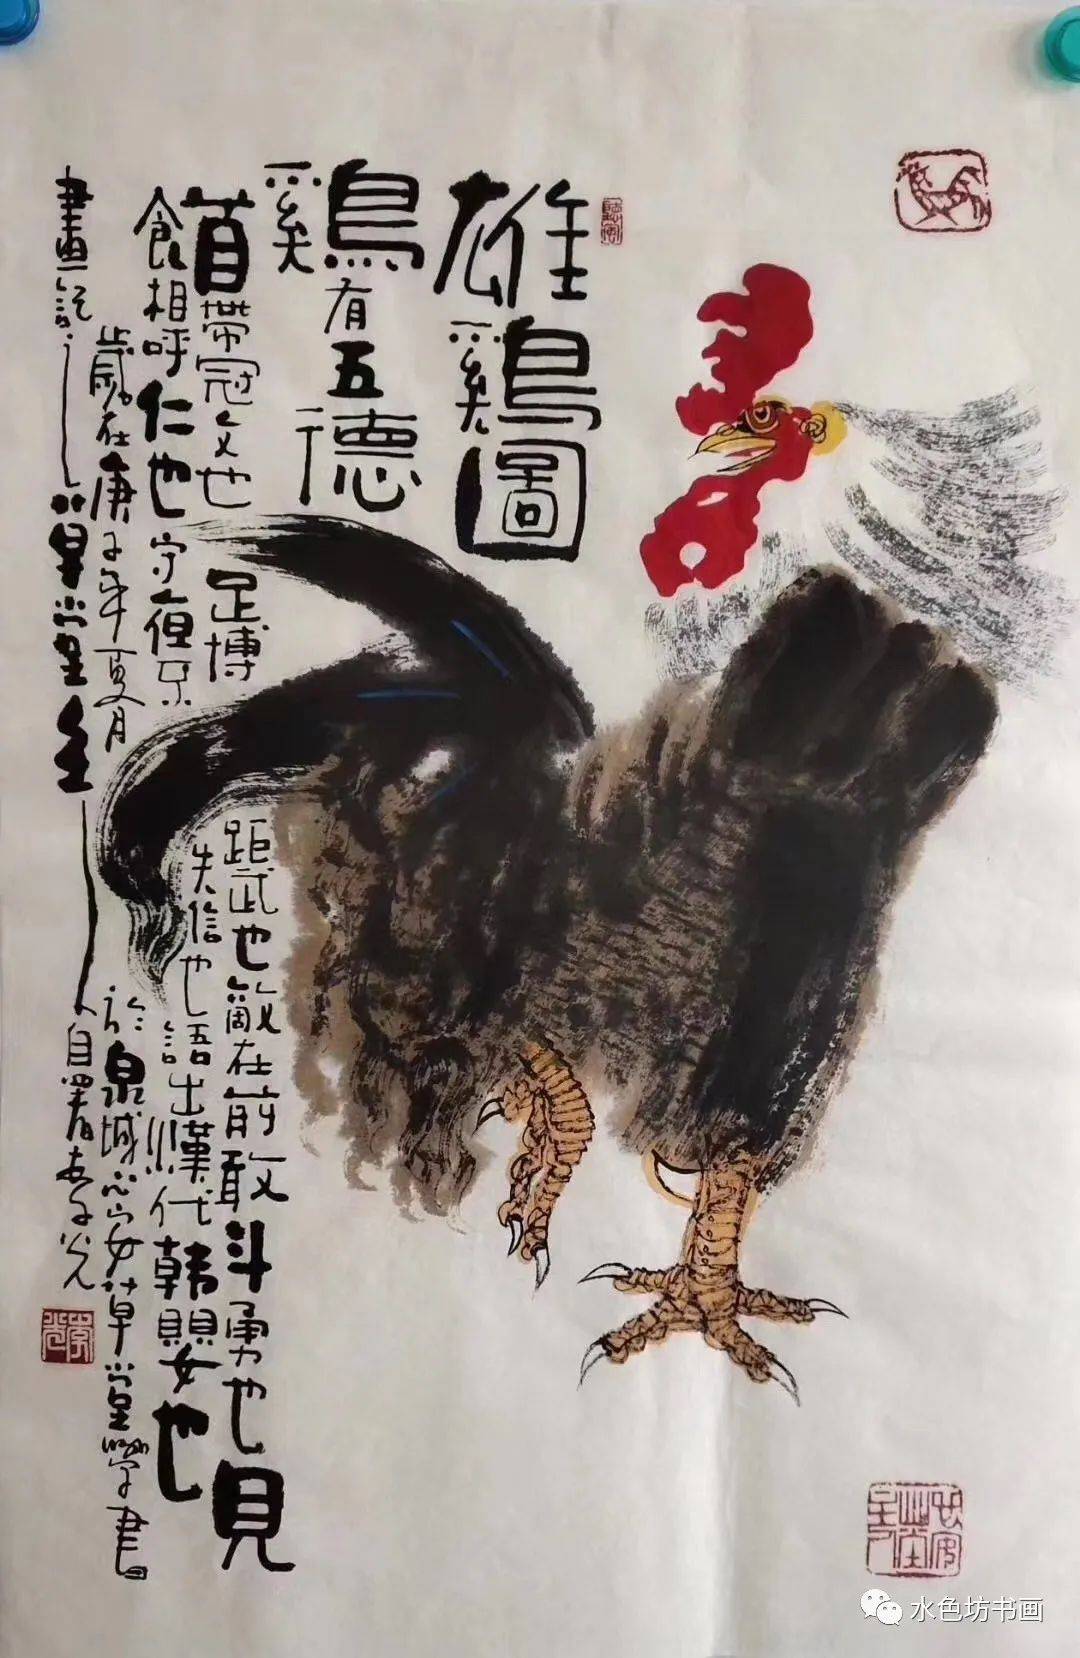 雄鷄圖
鷄有五德
首帶冠文也足博距武也敵在前敢斗勇也見
食相呼仁也守夜不失信也語出漢代韓嬰也
歲在庚子年夏月於泉城心安草堂學書
畫記
草堂主人自署李光
水色坊书画